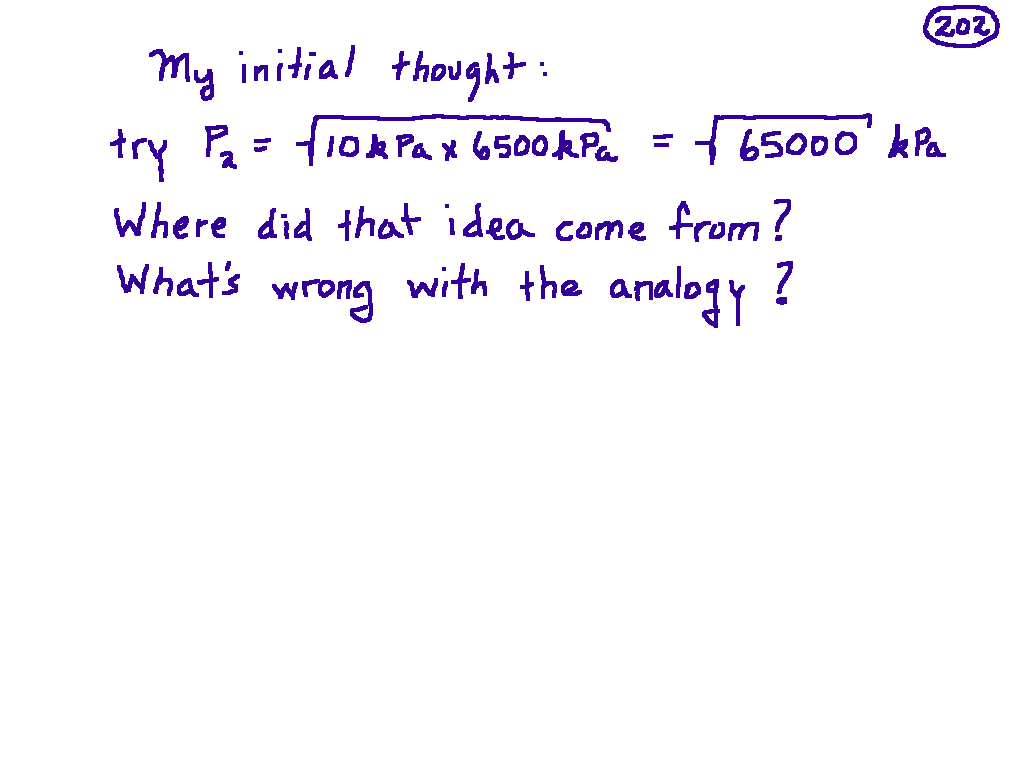 202
My initial thought:
try P₂ = √10 kPa x 6500 kPa = √65000 kPa
Where did that idea come from?
What's wrong with the analogy?